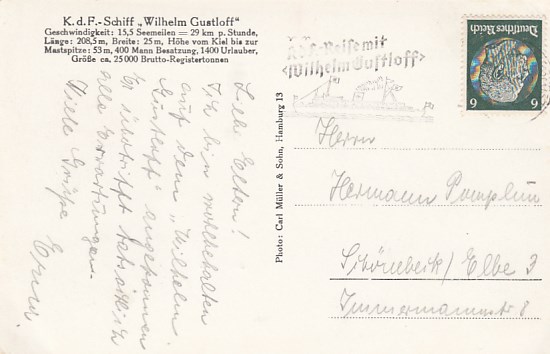 K. d. F.-Schiff „Wilhelm Gustloff“
Geschwindigkeit: 15,5 Seemeilen = 29 km p. Stunde,
Länge: 208,5 m, Breite: 25 m, Höhe vom Kiel bis zur
Mastspitze: 53 m, 400 Mann Besatzung, 1400 Urlauber,
Größe ca. 25 000 Brutto-Registertonnen
Liebe Eltern!
Ich bin wohlbehalten
auf dem „Wilhelm
Gustloff“ angekommen
Er übertrifft tatsächlich
alle Erwartungen.
Viele Grüße Erwin.
Photo: Carl Müller & Sohn, Hamburg 13
KdF-Reise mit
„Wilhelm Gustloff“
Deutsches Reich
6 6
Herrn
Hermann Pomplun
Schönebeck/Elbe 3
Immermannstr 8